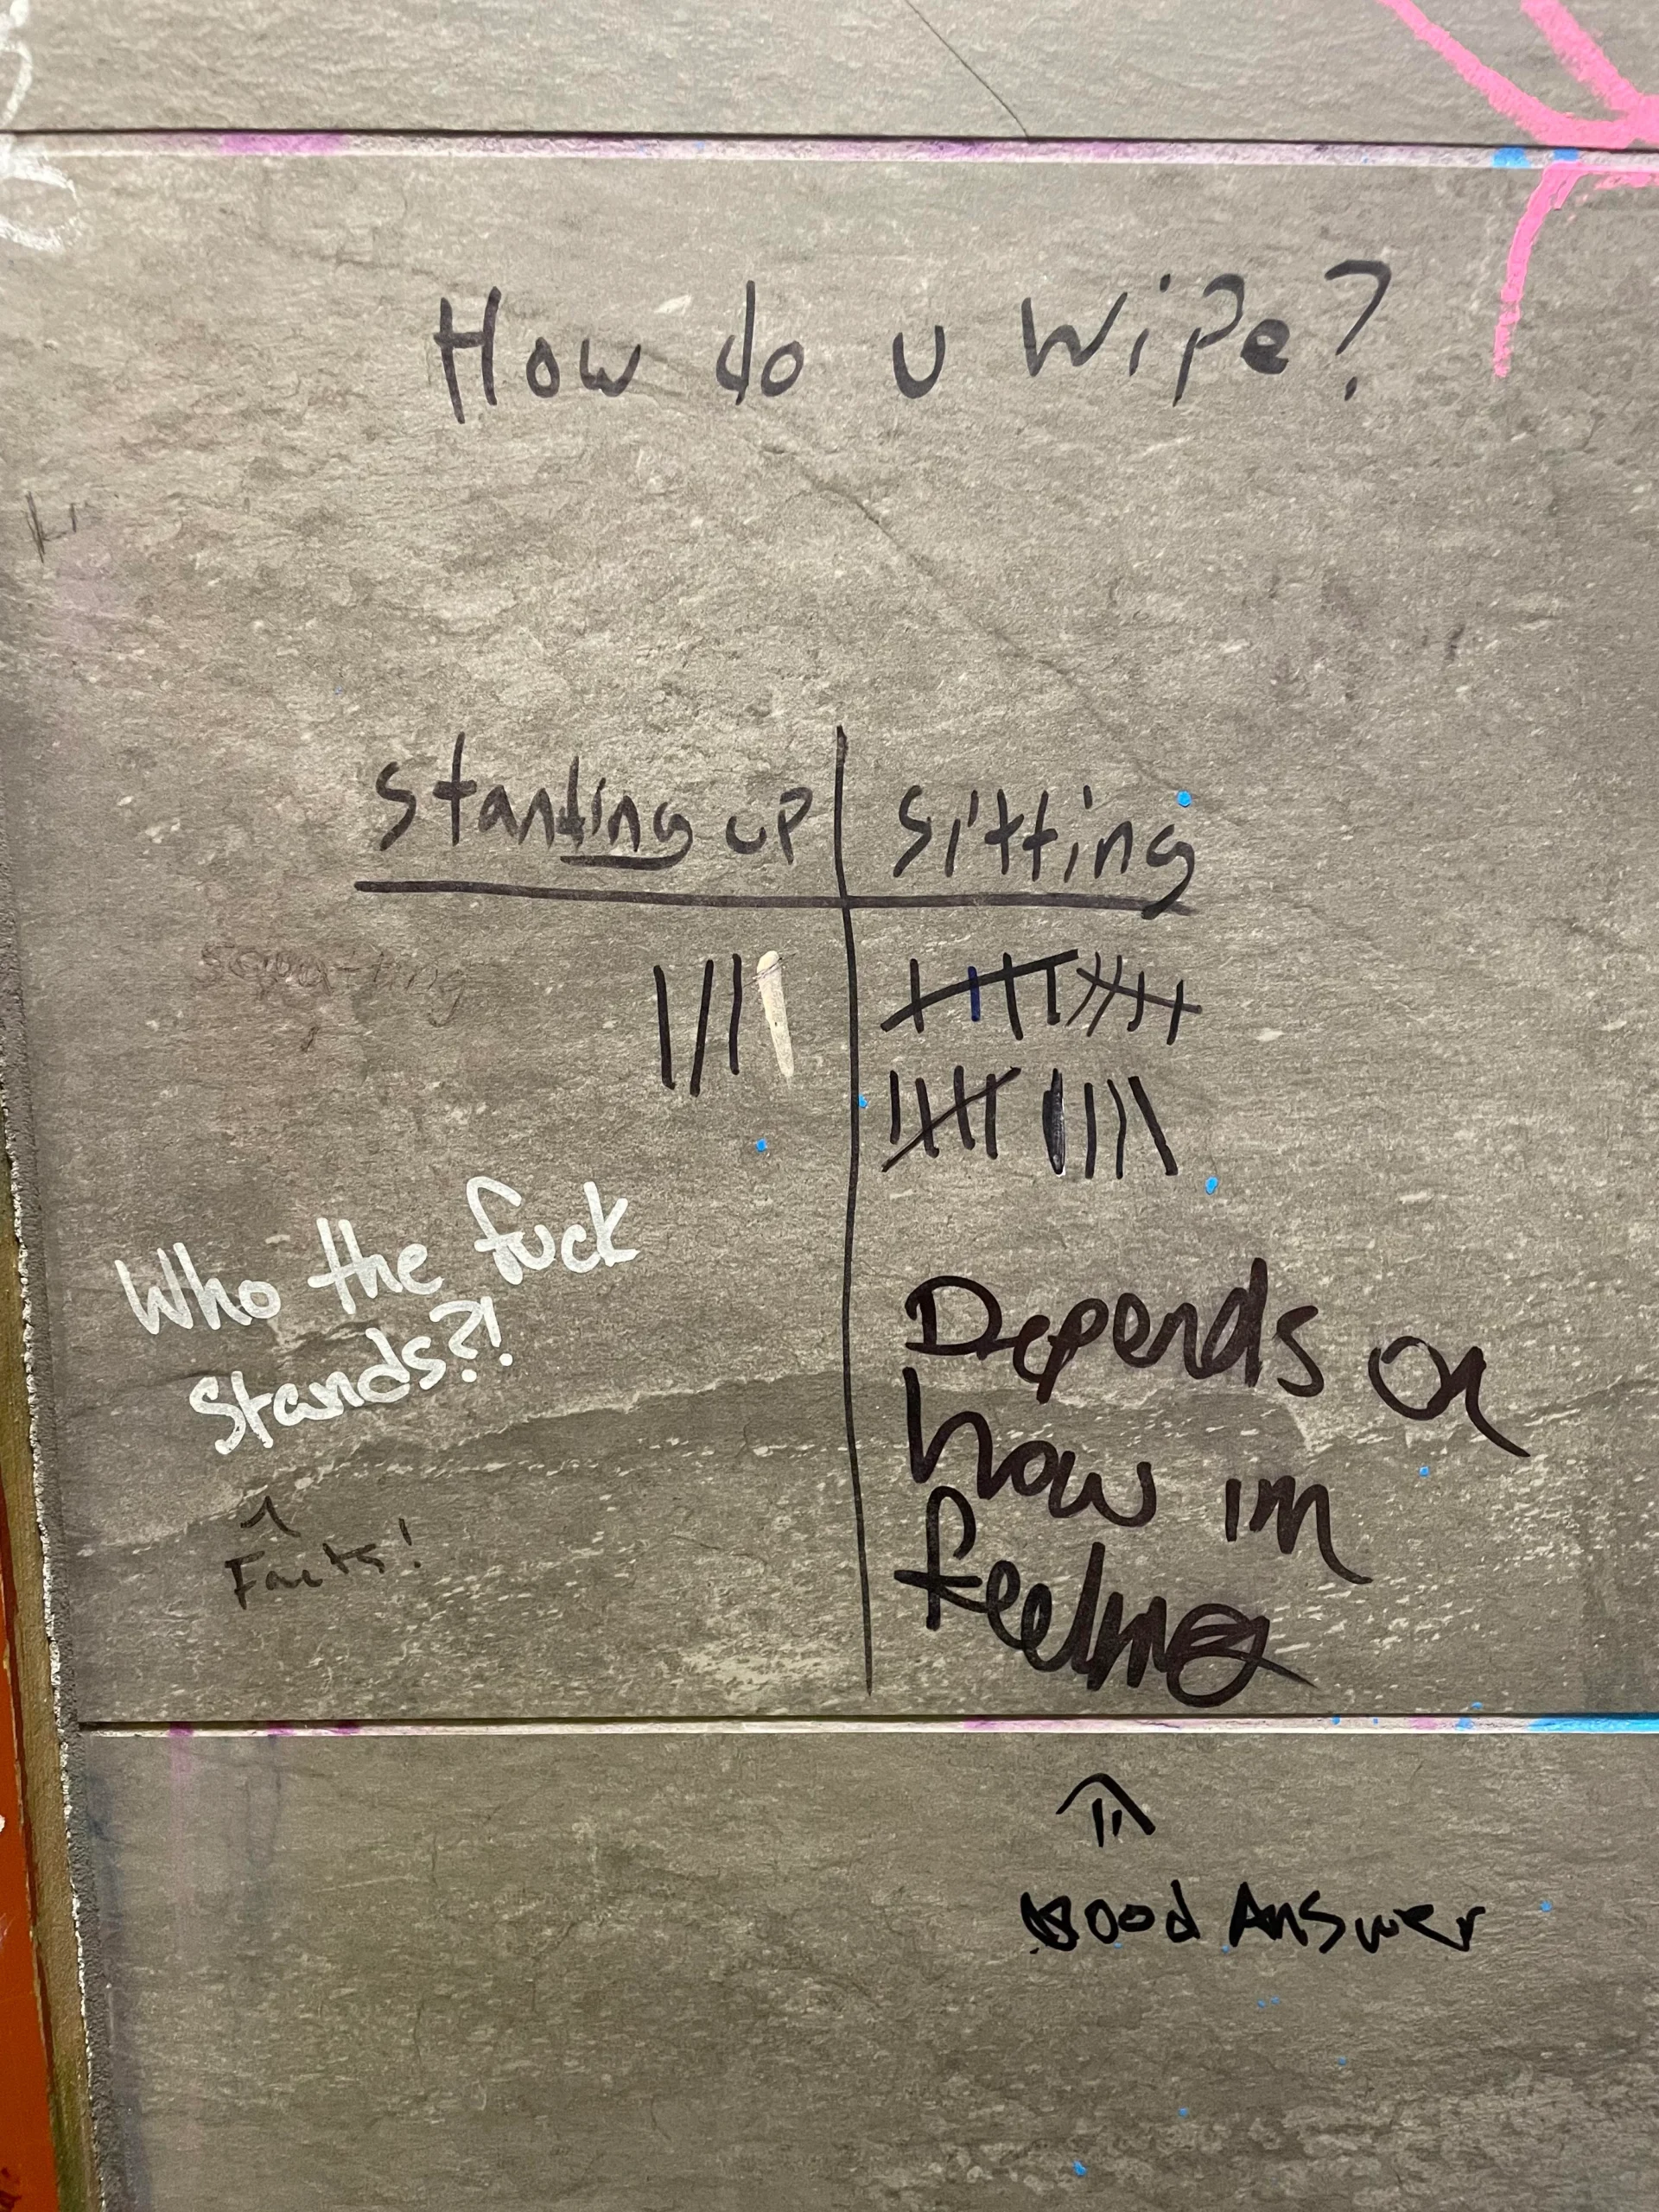 How do u wipe?
standing up
sitting
squatting
Who the fuck
stands?!
Facts!
Depends on
how im
feeling
Good Answer